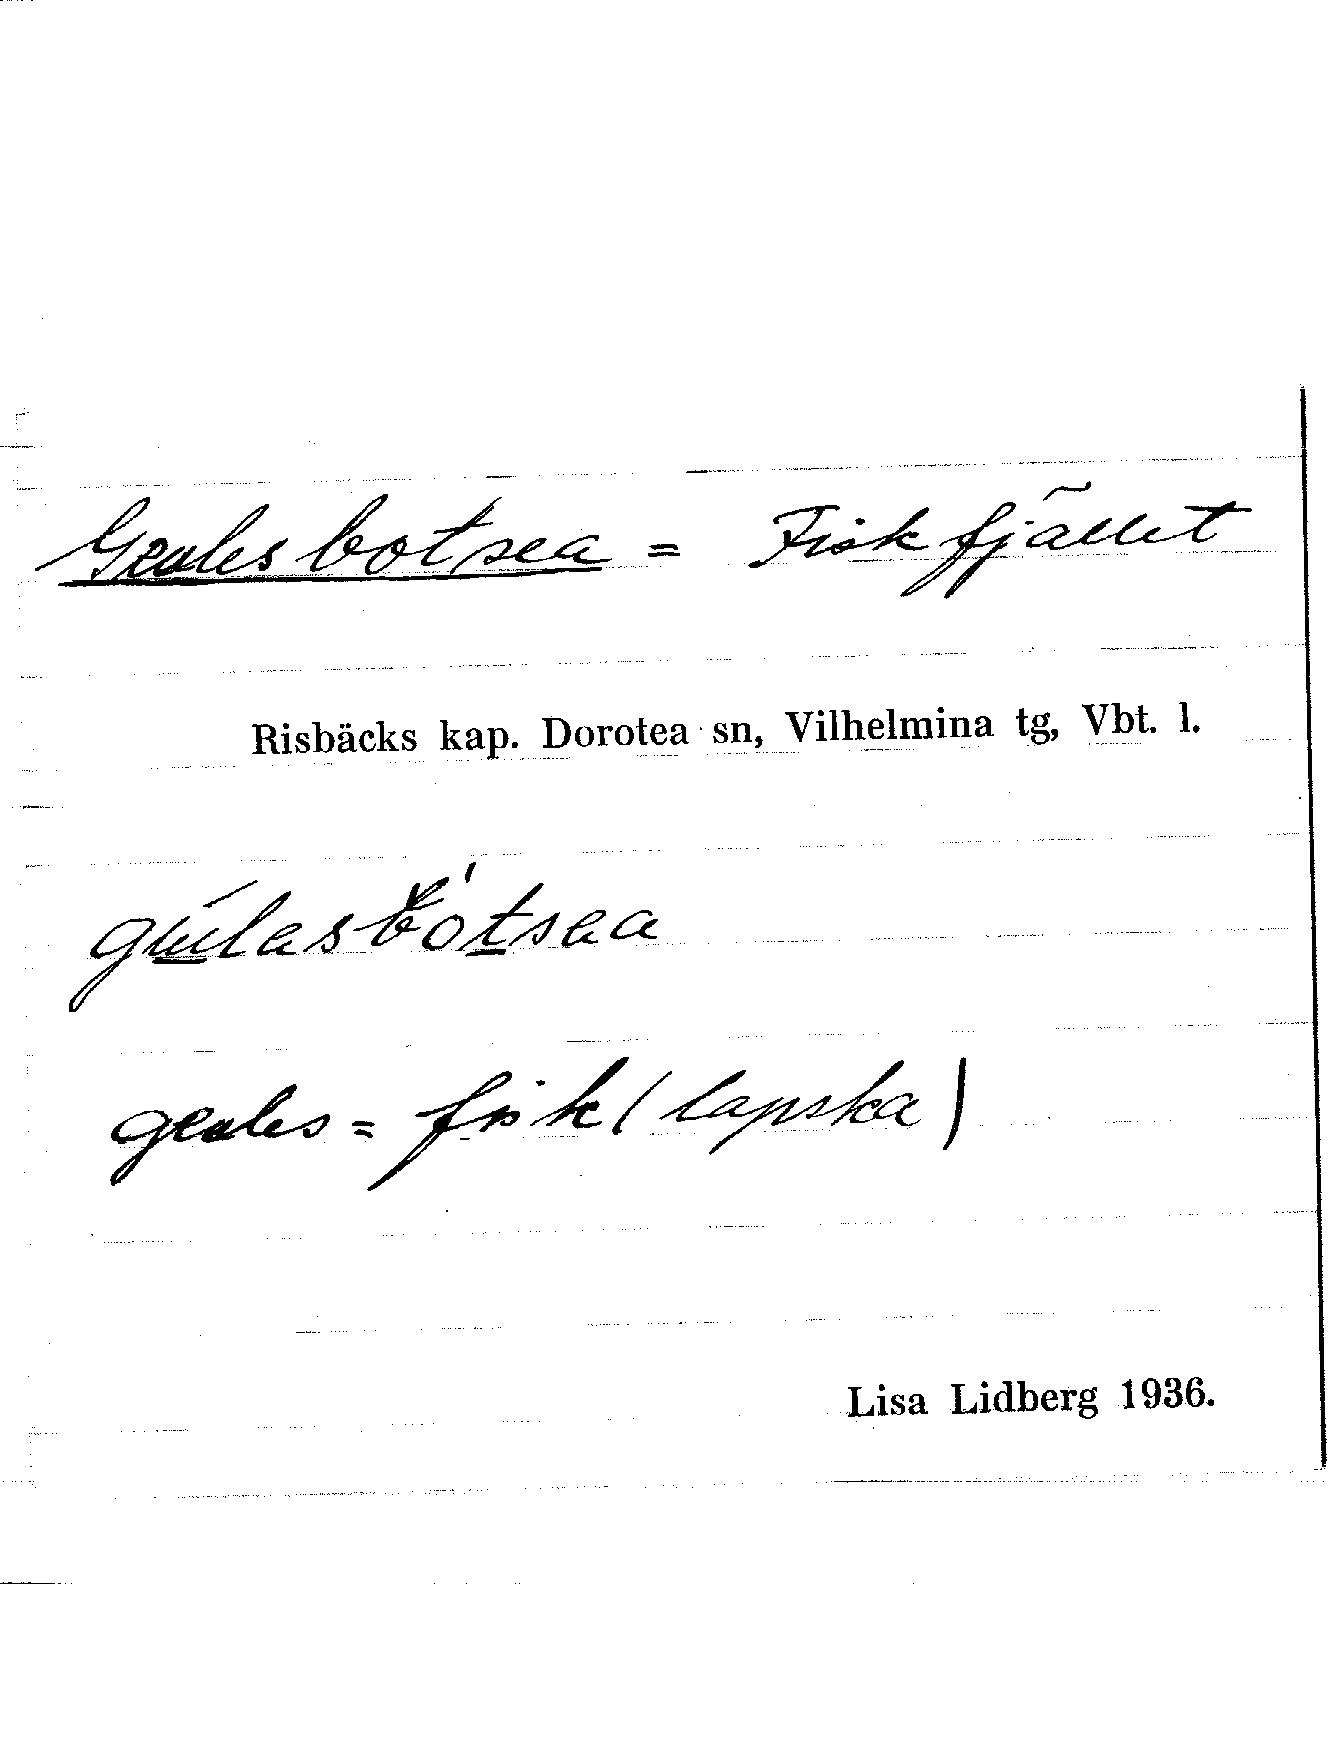 Geulesbotsea = Fiskfjället
Risbäcks kap. Dorotea sn, Vilhelmina tg, Vbt. l.
geules = fisk (lapska)
Lisa Lidberg 1936.